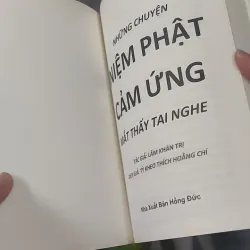 NHỮNG CHUYỆN
NIỆM PHẬT
CẢM ỨNG
MẮT THẤY TAI NGHE
TÁC GIẢ LÂM KHÁN TRỊ
DỊCH GIẢ TỲ KHEO THÍCH HOẰNG CHÍ
Nhà Xuất Bản Hồng Đức